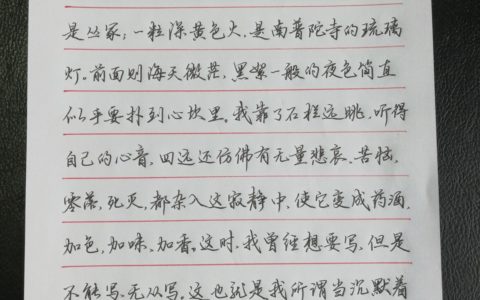 是丛冢；一粒深黄色火，是南普陀寺的琉璃
灯。前面则海天微茫，黑絮一般的夜色简直
似乎要扑到心坎里。我靠了石栏远眺，听得
自己的心音，四远还仿佛有无量悲哀，苦恼，
零落，死灭，都杂入这寂静中，使它变成药酒，
加色，加味，加香。这时，我曾经想要写，但是
不能写，无从写。这也就是我所谓当沉默着